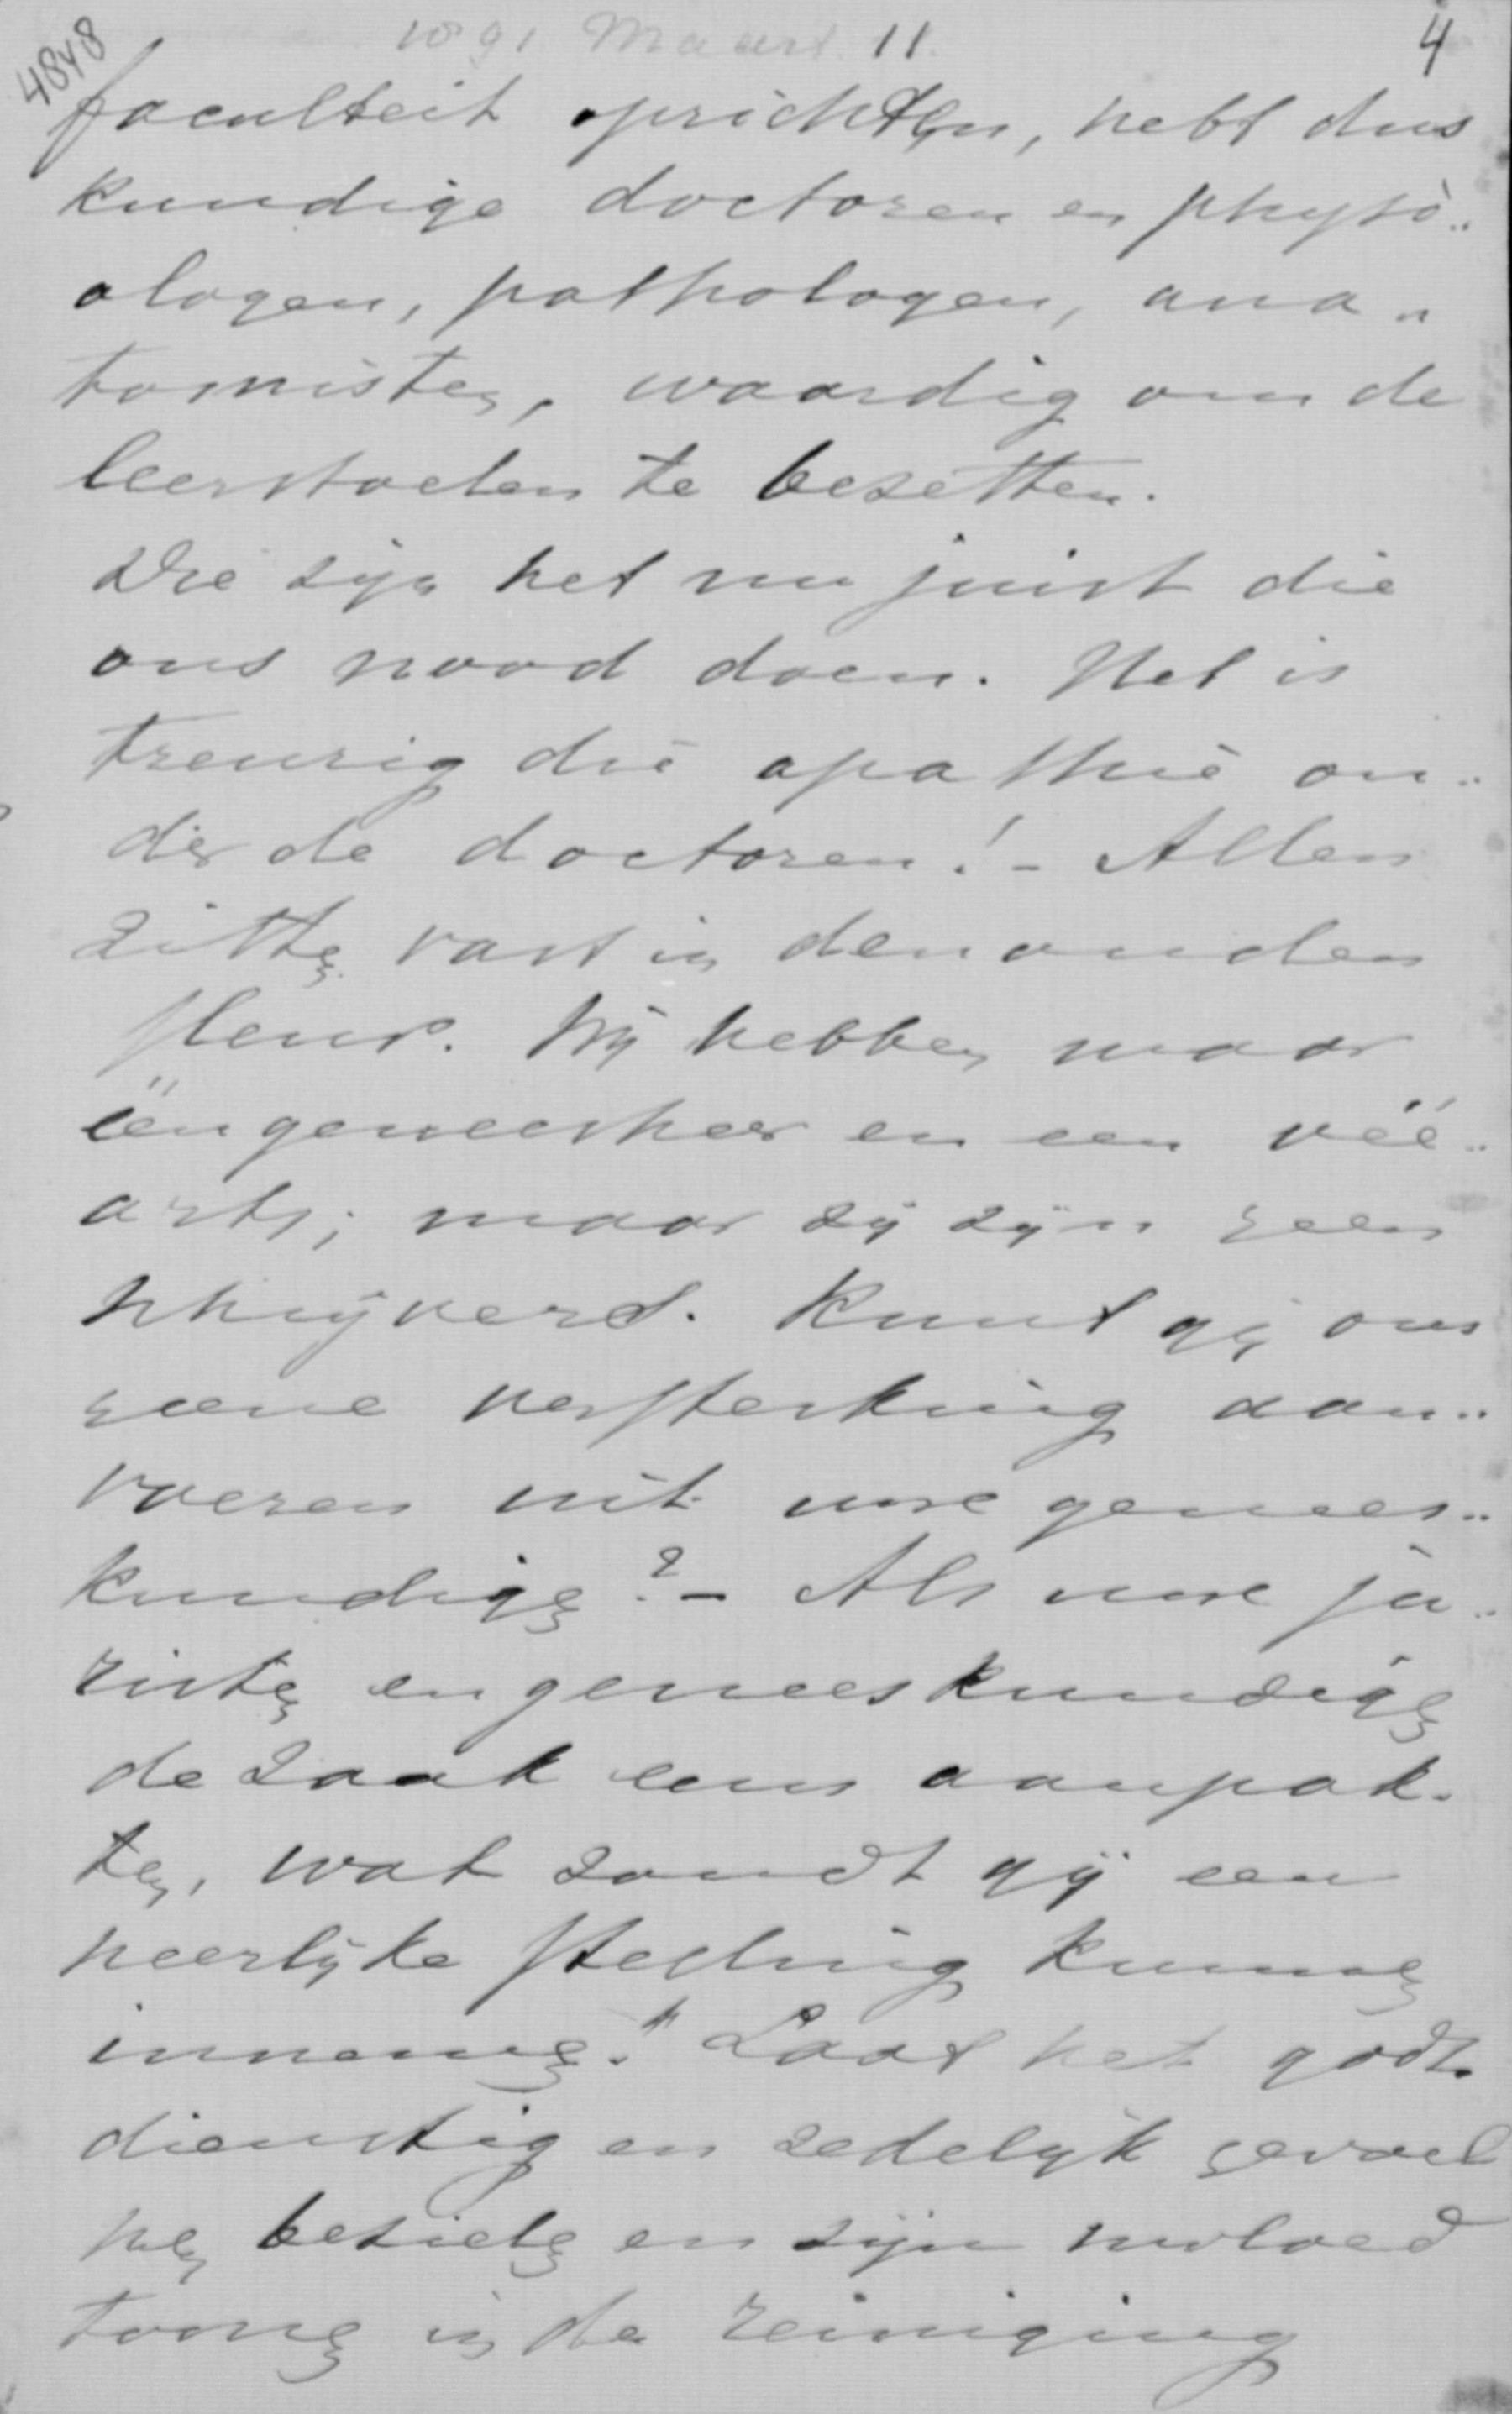 1891 Maart 11.
4
4848
faculteit oprichtten, hebt dus
kundige doctoren en physi..
ologen, pathologen, ana..
tomisten, waardig om de
leerstoelen te bezetten.
Die zijn het nu juist die
ons nood doen. Het is
treurig die apathie on..
der de doctoren! - Allen
zitten vast in den ouden
sleur. Wij hebben maar
één geneesheer en een véé..
arts; maar zij zijn geen
Kunt gij ons
geene versterking aan..
voeren uit uwe genees..
kundigen? - Als uwe ju..
risten en geneeskundigen
de zaak eens aanpak.
ten, wat zoudt gij een
heerlijke stelling kunnen
innemen." Laat het godt.
dienstig en zedelijk gevoel
hen bezielen en zijn invloed
toonen in de reiniging